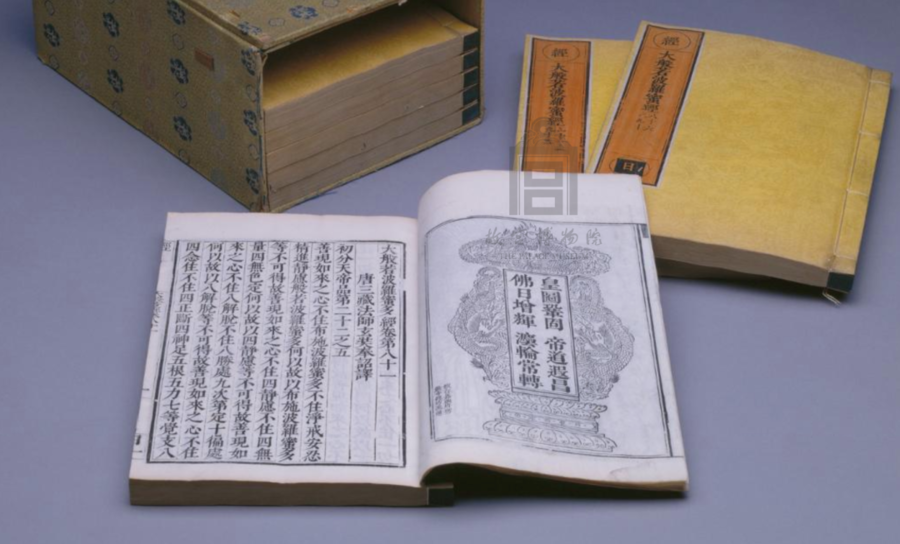 皇圖鞏固 帝道遐昌
佛日增輝 灋輪常轉
大般若波羅蜜多經卷第八十一
唐三藏法師玄奘奉詔譯
初分天帝品第二十二之五
善現如來之心不住布施波羅蜜多不住淨戒安忍
精進靜慮般若波羅蜜多何以故以布施波羅蜜多
等不可得故善現如來之心不住四靜慮不住四無
量四無色定何以故以四靜慮等不可得故善現如
來之心不住八解脫不住八勝處九次第定十徧處
何以故以八解脫等不可得故善現如來之心不住
四念住不住四正斷四神足五根五力七等覺支八
經
大般若波羅蜜經
經
大般若波羅蜜經